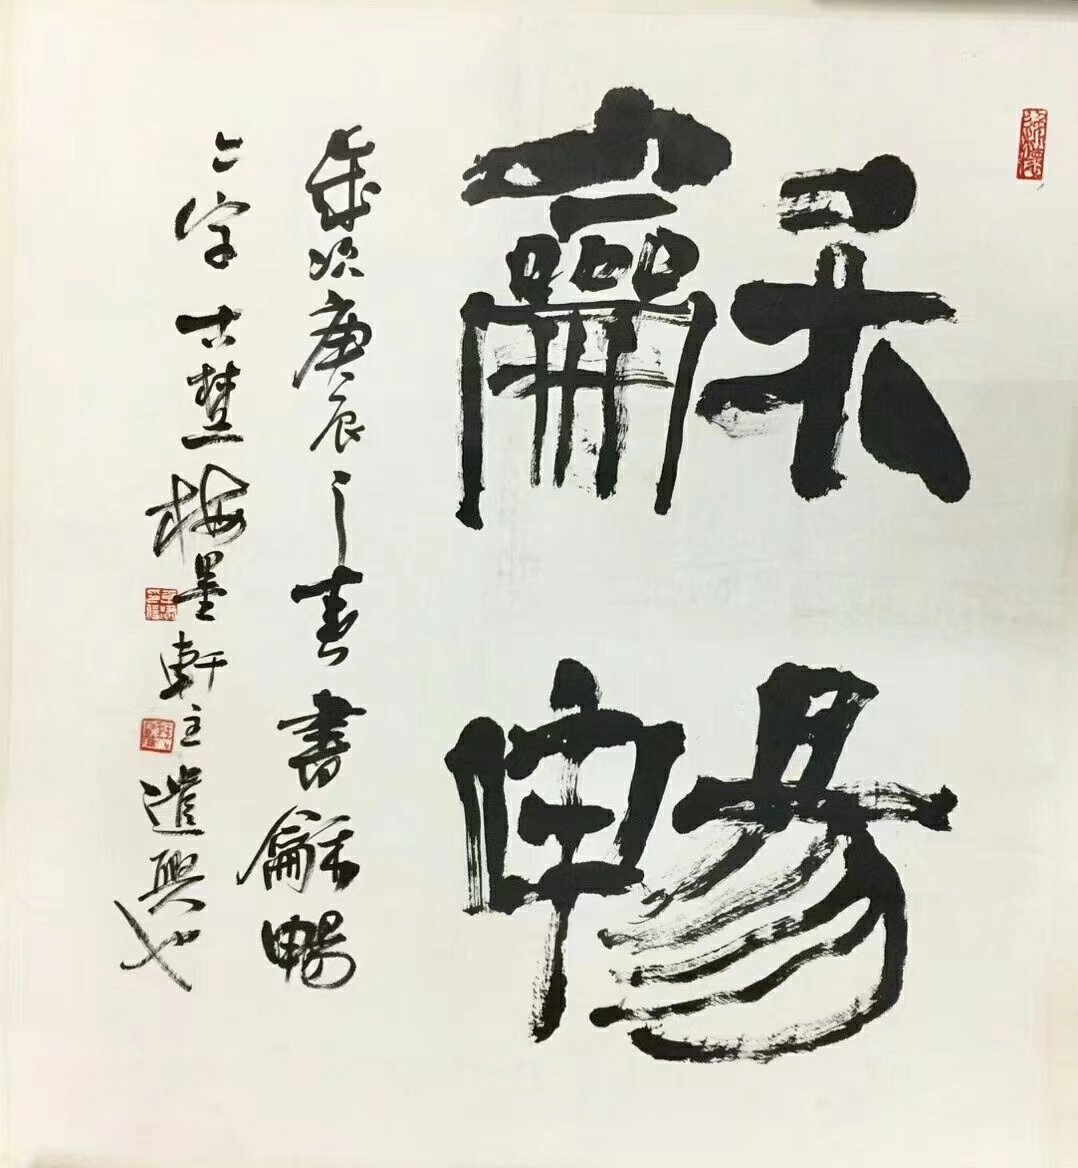 龢暢
歲次庚辰之春書龢暢
二字古楚梅墨軒主遣興也